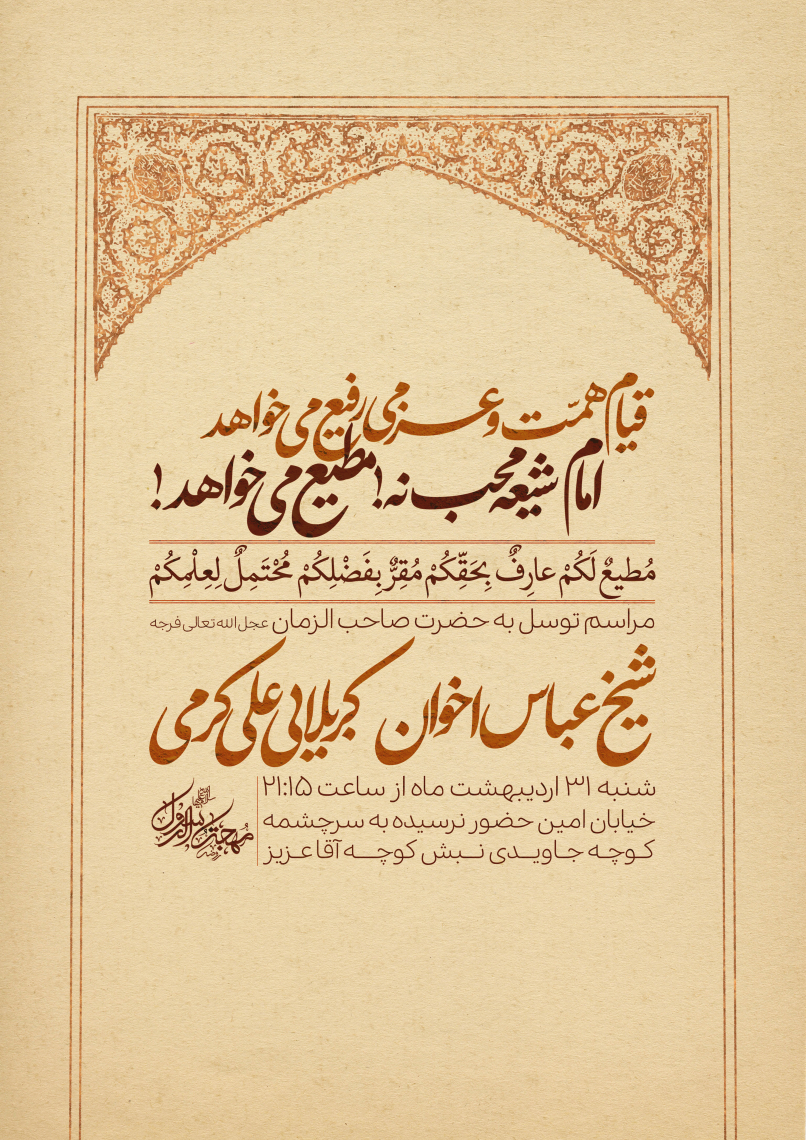 قیام همّت و عزمی رفیع می‌خواهد
امام شیعه محب نه! مطیع می‌خواهد!
مُطیعٌ لَکُمْ عارِفٌ بِحَقِّکُمْ مُقِرٌّ بِفَضْلِکُمْ مُحْتَمِلٌ لِعِلْمِکُمْ
مراسم توسل به حضرت صاحب الزمان عجل الله تعالی فرجه
شیخ عباس اخوان کربلایی علی کرمی
شنبه ۳۱ اردیبهشت ماه از ساعت ۲۱:۱۵
خیابان امین حضور نرسیده به سرچشمه
کوچه جاویدی نبش کوچه آقا عزیز
مهجة الرسول